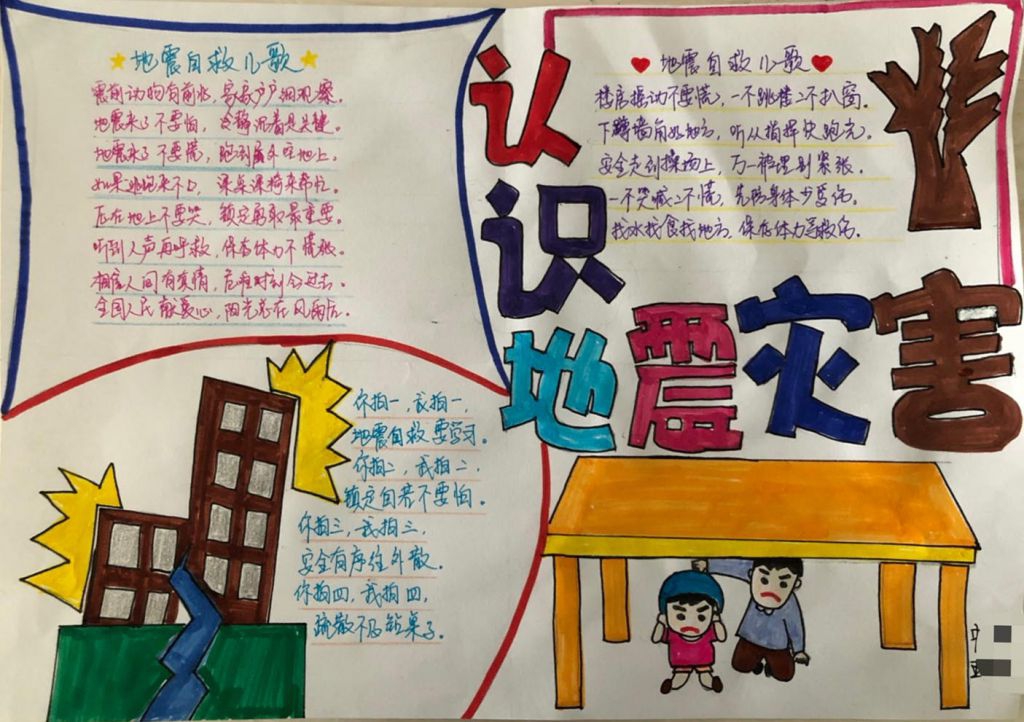 地震自救儿歌
震前动物有前兆，家家户户细观察。
地震来了不要怕，冷静沉着是关键。
地震来了不要慌，跑到屋外空地上。
如果逃跑来不及，课桌课椅来帮忙。
压在地上不要哭，镇定自救最重要。
听到人声再呼救，保存体力不慌张。
相信人间有真情，危难时刻会过去。
全国人民献爱心，阳光总在风雨后。
认识
地震灾害
地震自救儿歌
楼房摇动不要慌，一不跳楼二不扒窗。
下蹲墙角如知方，听从指挥快跑光。
安全走到操场上，万一被埋别紧张。
一不哭喊二不慌，先防身体少受伤。
找水找食找地方，保存体力等救伤。
你拍一，我拍一，
地震自救要学习。
你拍二，我拍二，
镇定自若不要怕。
你拍三，我拍三，
安全有序往外散。
你拍四，我拍四，
疏散不及钻桌子。